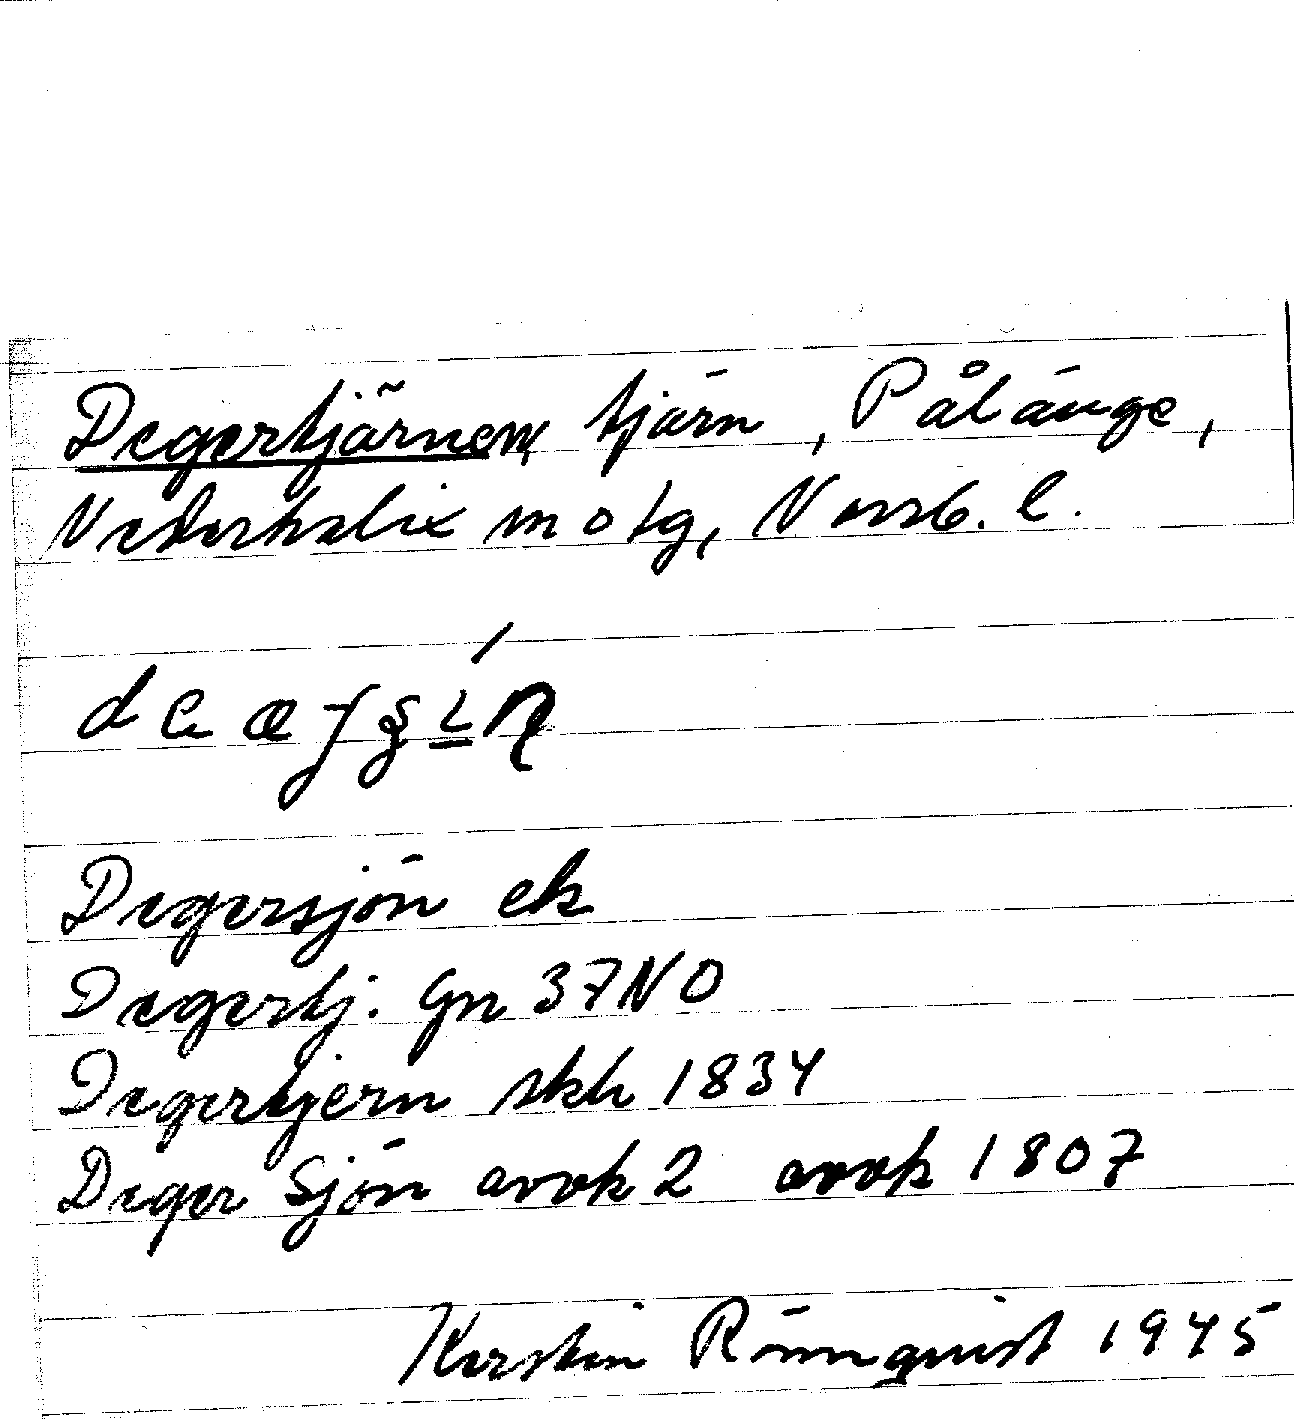 Degertjärnen, tjärn, Pålänge,
Nederkalix sn o tg, Norrb. l.
Degersjön ek
Degertj. Gn 37NO
Degertjern skh 1834
Deger Sjön avvk 2 avvk 1807
Kerstin Rönnquist 1945